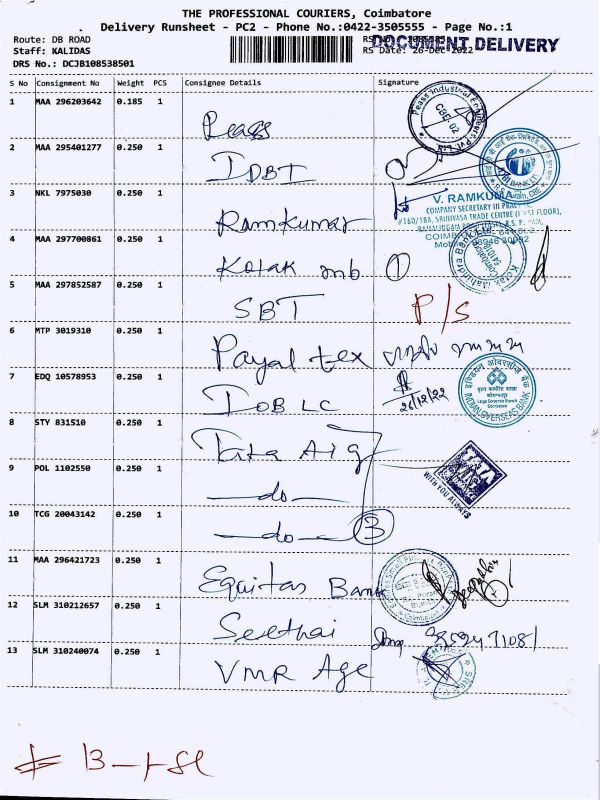 THE PROFESSIONAL COURIERS, Coimbatore
Delivery Runsheet - PC2 - Phone No.:0422-3505555 - Page No.:1
Route: DB ROAD
Staff: KALIDAS
RS Date: 26-Dec-2022
DOCUMENT DELIVERY
DRS No.: DCJB108538501
S No Consignment No Weight PCS Consignee Details Signature
1 MAA 296203642 0.185 1 Peass
Peass Industrial Engineers Pvt Ltd
CBE 02
2 MAA 295401277 0.250 1 IDBT
IDBI BANK LTD
R.S. Puram, CBE
3 NKL 7975030 0.250 1 Ramkumar
V. RAMKUMAR
COMPANY SECRETARY IN PRACTICE
#160/18A, SRINIVASA TRADE CENTRE (FIRST FLOOR),
4 MAA 297700861 0.250 1 Kotak mb 1
Kotak Mahindra Bank
Coimbatore
5 MAA 297852587 0.250 1 SBT P/S
6 MTP 3019310 0.250 1 Payal tex
7 EDQ 10578953 0.250 1 IOB LC
26/12/22
इण्डियन ओवरसीज़ बैंक
INDIAN OVERSEAS BANK
8 STY 831510 0.250 1 Tata Aig
9 POL 1102550 0.250 1 —do—
WITH YOU ALWAYS
10 TCG 20043142 0.250 1 —do— 3
11 MAA 296421723 0.250 1 Equitas Bank
12 SLM 310212657 0.250 1 Seethai
13 SLM 310240074 0.250 1 VMR Age